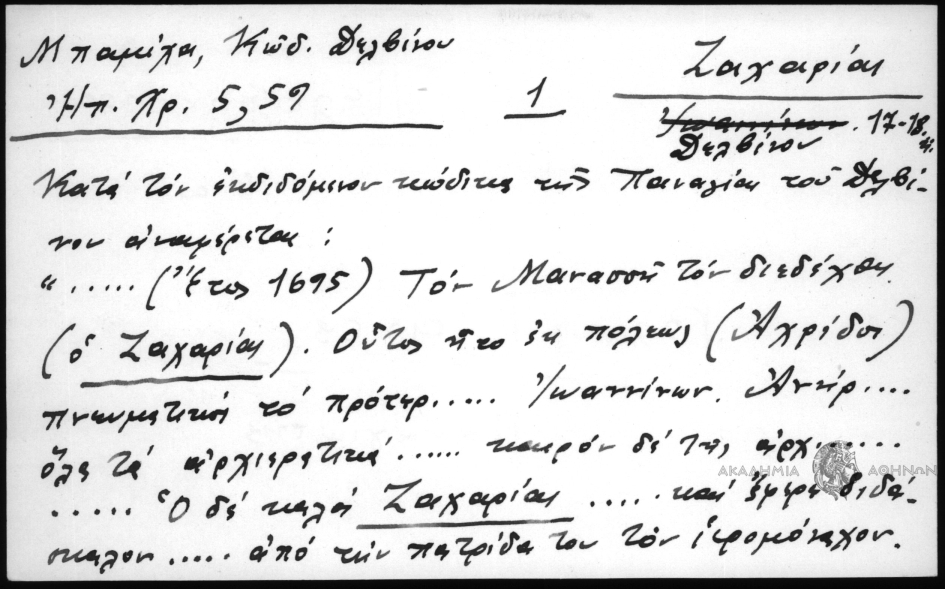 Μπαμίχα, Κῶδ. Δελβίνου
Ἠπ. Χρ. 5, 59
1
Ζαχαρίας
Ἰωαννίνων. 17-18.
Δελβίνου
Κατά τόν ἐκδιδόμενον κώδικα τῆς Παναγίας τοῦ Δελβί-
νου ἀναφέρεται :
“ ..... (Ἔτος 1695) Τόν Μανασσῆ τόν διεδέχθη
(ὁ Ζαχαρίας). Οὗτος ἦτο ἐκ πόλεως (Ἀχρίδος)
πνευματικός τό πρότερ..... Ἰωαννίνων. Ἀνήρ....
ὅλα τά ἀρχιερατικά ...... καιρόν δέ τῆς ἀρχ......
..... Ὁ δέ καλός Ζαχαρίας ..... καί ἔφερε διδά-
σκαλον ..... ἀπό τήν πατρίδα του τόν ἱερομόναχον.
ΑΚΑΔΗΜΙΑ ΑΘΗΝΩΝ